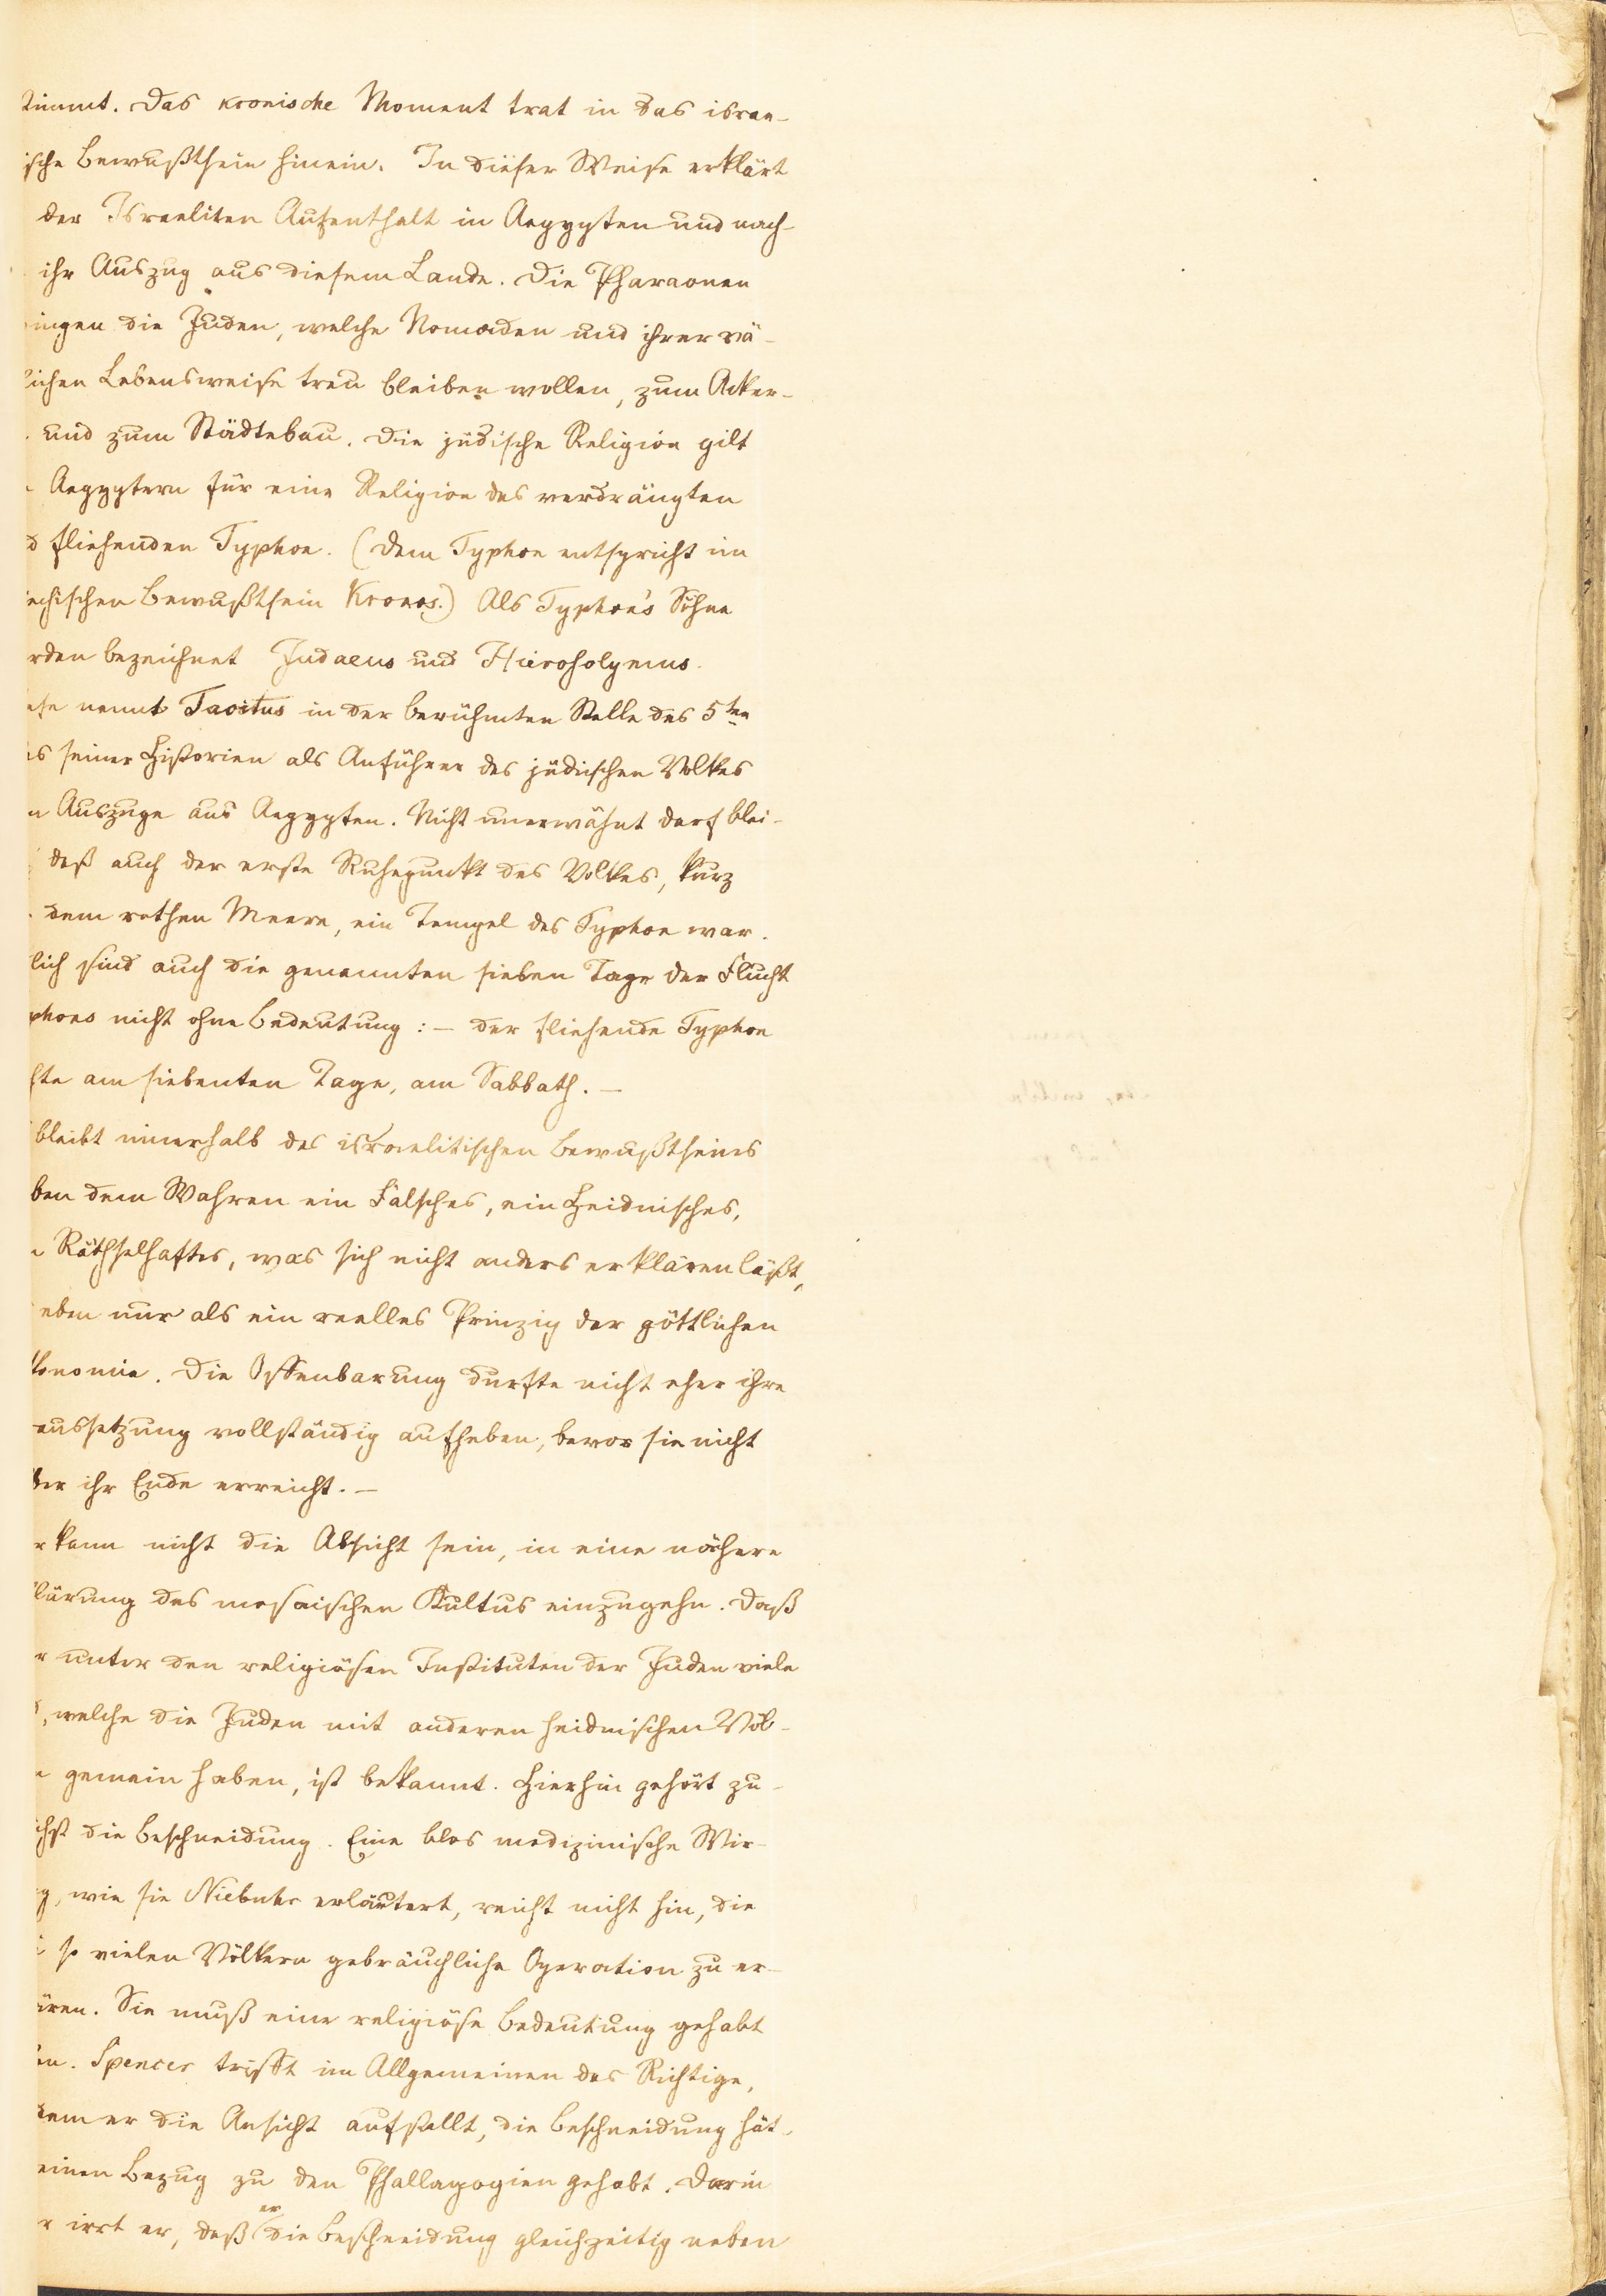 timmt. Das kronische Moment trat in das israe-
ische Bewußtsein hinein. In dieser Weise erklärt
der Israeliten Aufenthalt in Aegypten und nach-
ihr Auszug aus diesem Lande. Die Pharaonen
ingen die Juden, welche Nomaden und ihrer vä-
lichen Lebensweise treu bleiben wollen, zum Acker-
und zum Städtebau. Die jüdische Religion gilt
Aegyptern für eine Religion des verdrängten
d fliehenden Typhon. (Dem Typhon entspricht im
echischen Bewußtsein Kronos.) Als Typhon's Söhne
rden bezeichnet Judaeus und Hierosolymus.
ese nennt Tacitus in der berühmten Stelle des 5ten
s seiner Historien als Anführer des jüdischen Volkes
n Auszuge aus Aegypten. Nicht unerwähnt darf blei-
daß auch der erste Ruhepunkt des Volkes, kurz
dem rothen Meere, ein Tempel des Typhon war.
lich sind auch die genannten sieben Tage der Flucht
phons nicht ohne Bedeutung: – der fliehende Typhon
ste am siebenten Tage, am Sabbath. –
bleibt innerhalb des israelitischen Bewußtseins
ben dem Wahren ein Falsches, ein Heidnisches,
Räthselhaftes, was sich nicht anders erklären läßt,
eben nur als ein reelles Prinzip der göttlichen
konomie. Die Offenbarung durfte nicht eher ihre
aussetzung vollständig aufheben, bevor sie nicht
der ihr Ende erreicht. –
r kann nicht die Absicht sein, in eine nähere
lärung des mosaischen Kultus einzugehn. Daß
r unter den religiösen Instituten der Juden viele
, welche die Juden mit anderen heidnischen Völ-
n gemein haben, ist bekannt. Hierhin gehört zu-
chst die Beschneidung. Eine blos medizinische Wir-
g, wie sie Niebuhr erläutert, reicht nicht hin, die
i so vielen Völkern gebräuchliche Operation zu er-
ären. Sie muß eine religiöse Bedeutung gehabt
en. Spencer trifft im Allgemeinen das Richtige,
dem er die Ansicht aufstellt, die Beschneidung hät-
einen Bezug zu den Phallagogien gehabt. Darin
r irrt er, daß er die Beschneidung gleichzeitig neben